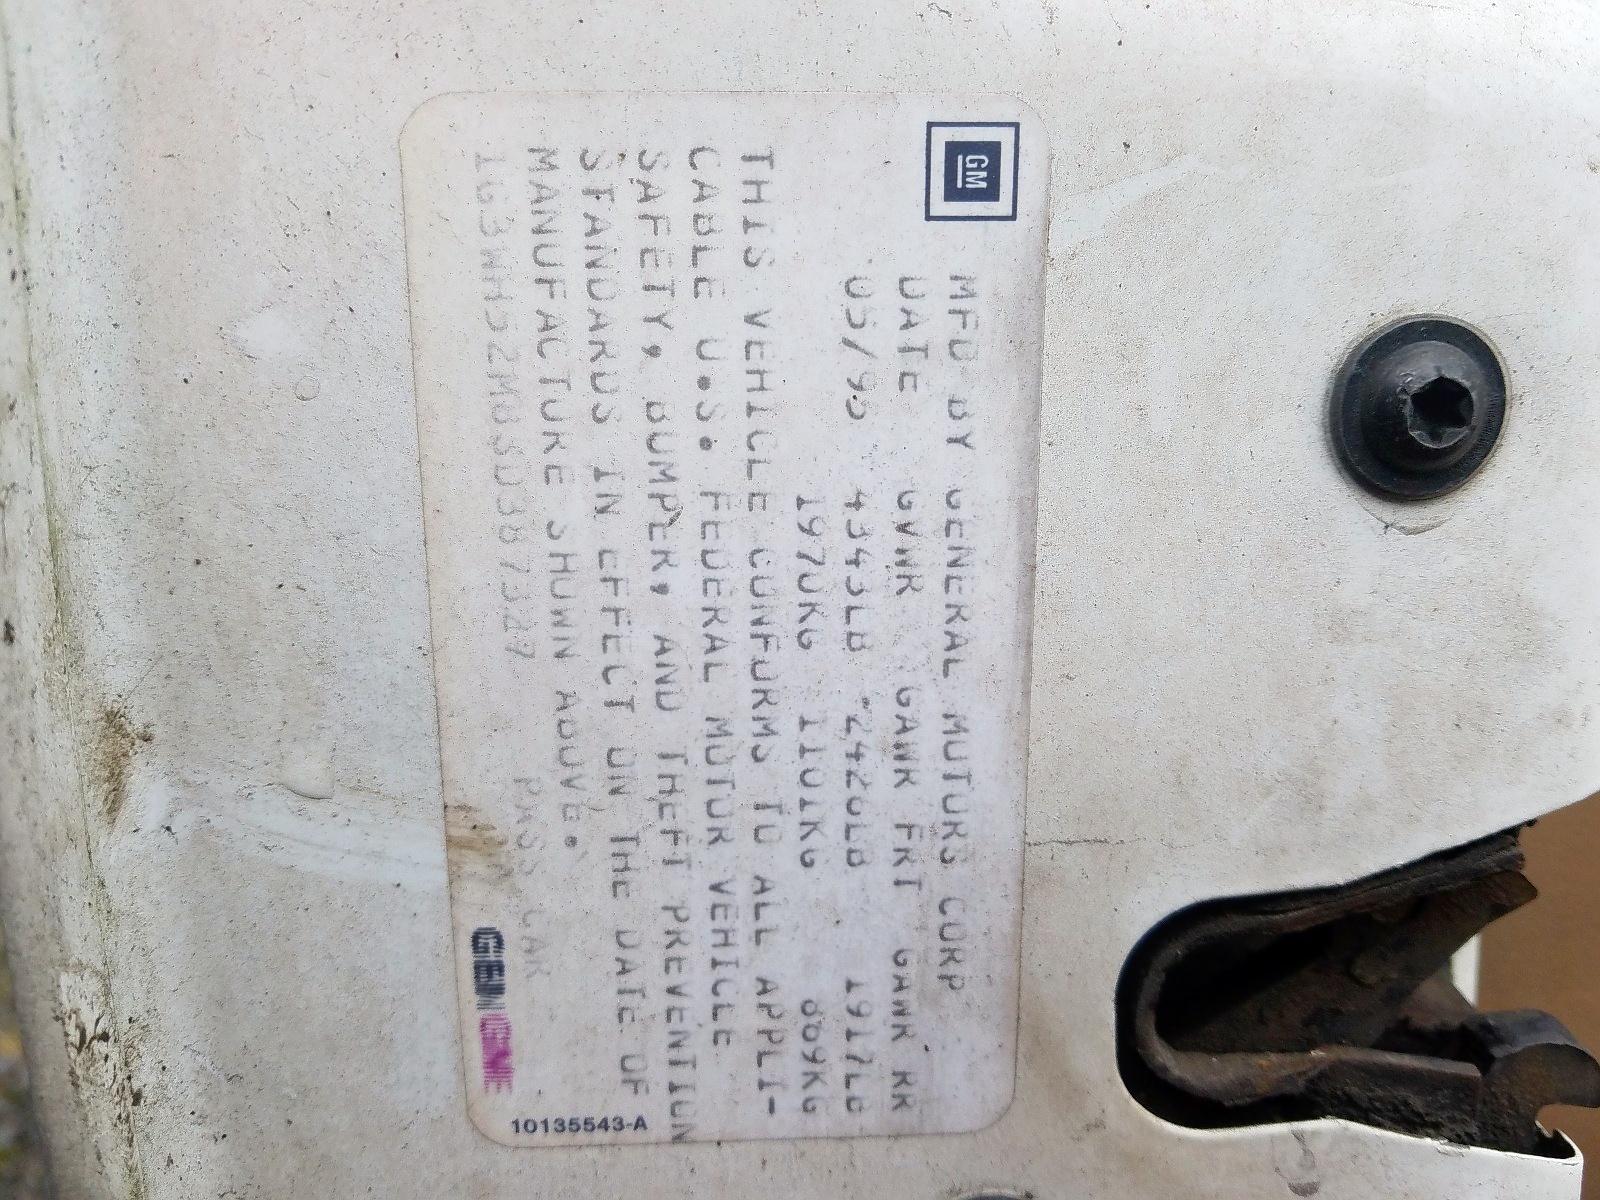 GM
MFD BY GENERAL MOTORS CORP
DATE GVWR GAWR FRT GAWR RR
05/95 4343LB 2426LB 1917LB
1970KG 1101KG 869KG
THIS VEHICLE CONFORMS TO ALL APPLI-
CABLE U.S. FEDERAL MOTOR VEHICLE
SAFETY, BUMPER, AND THEFT PREVENTION
STANDARDS IN EFFECT ON THE DATE OF
MANUFACTURE SHOWN ABOVE.
PASS CAR
10135543-A